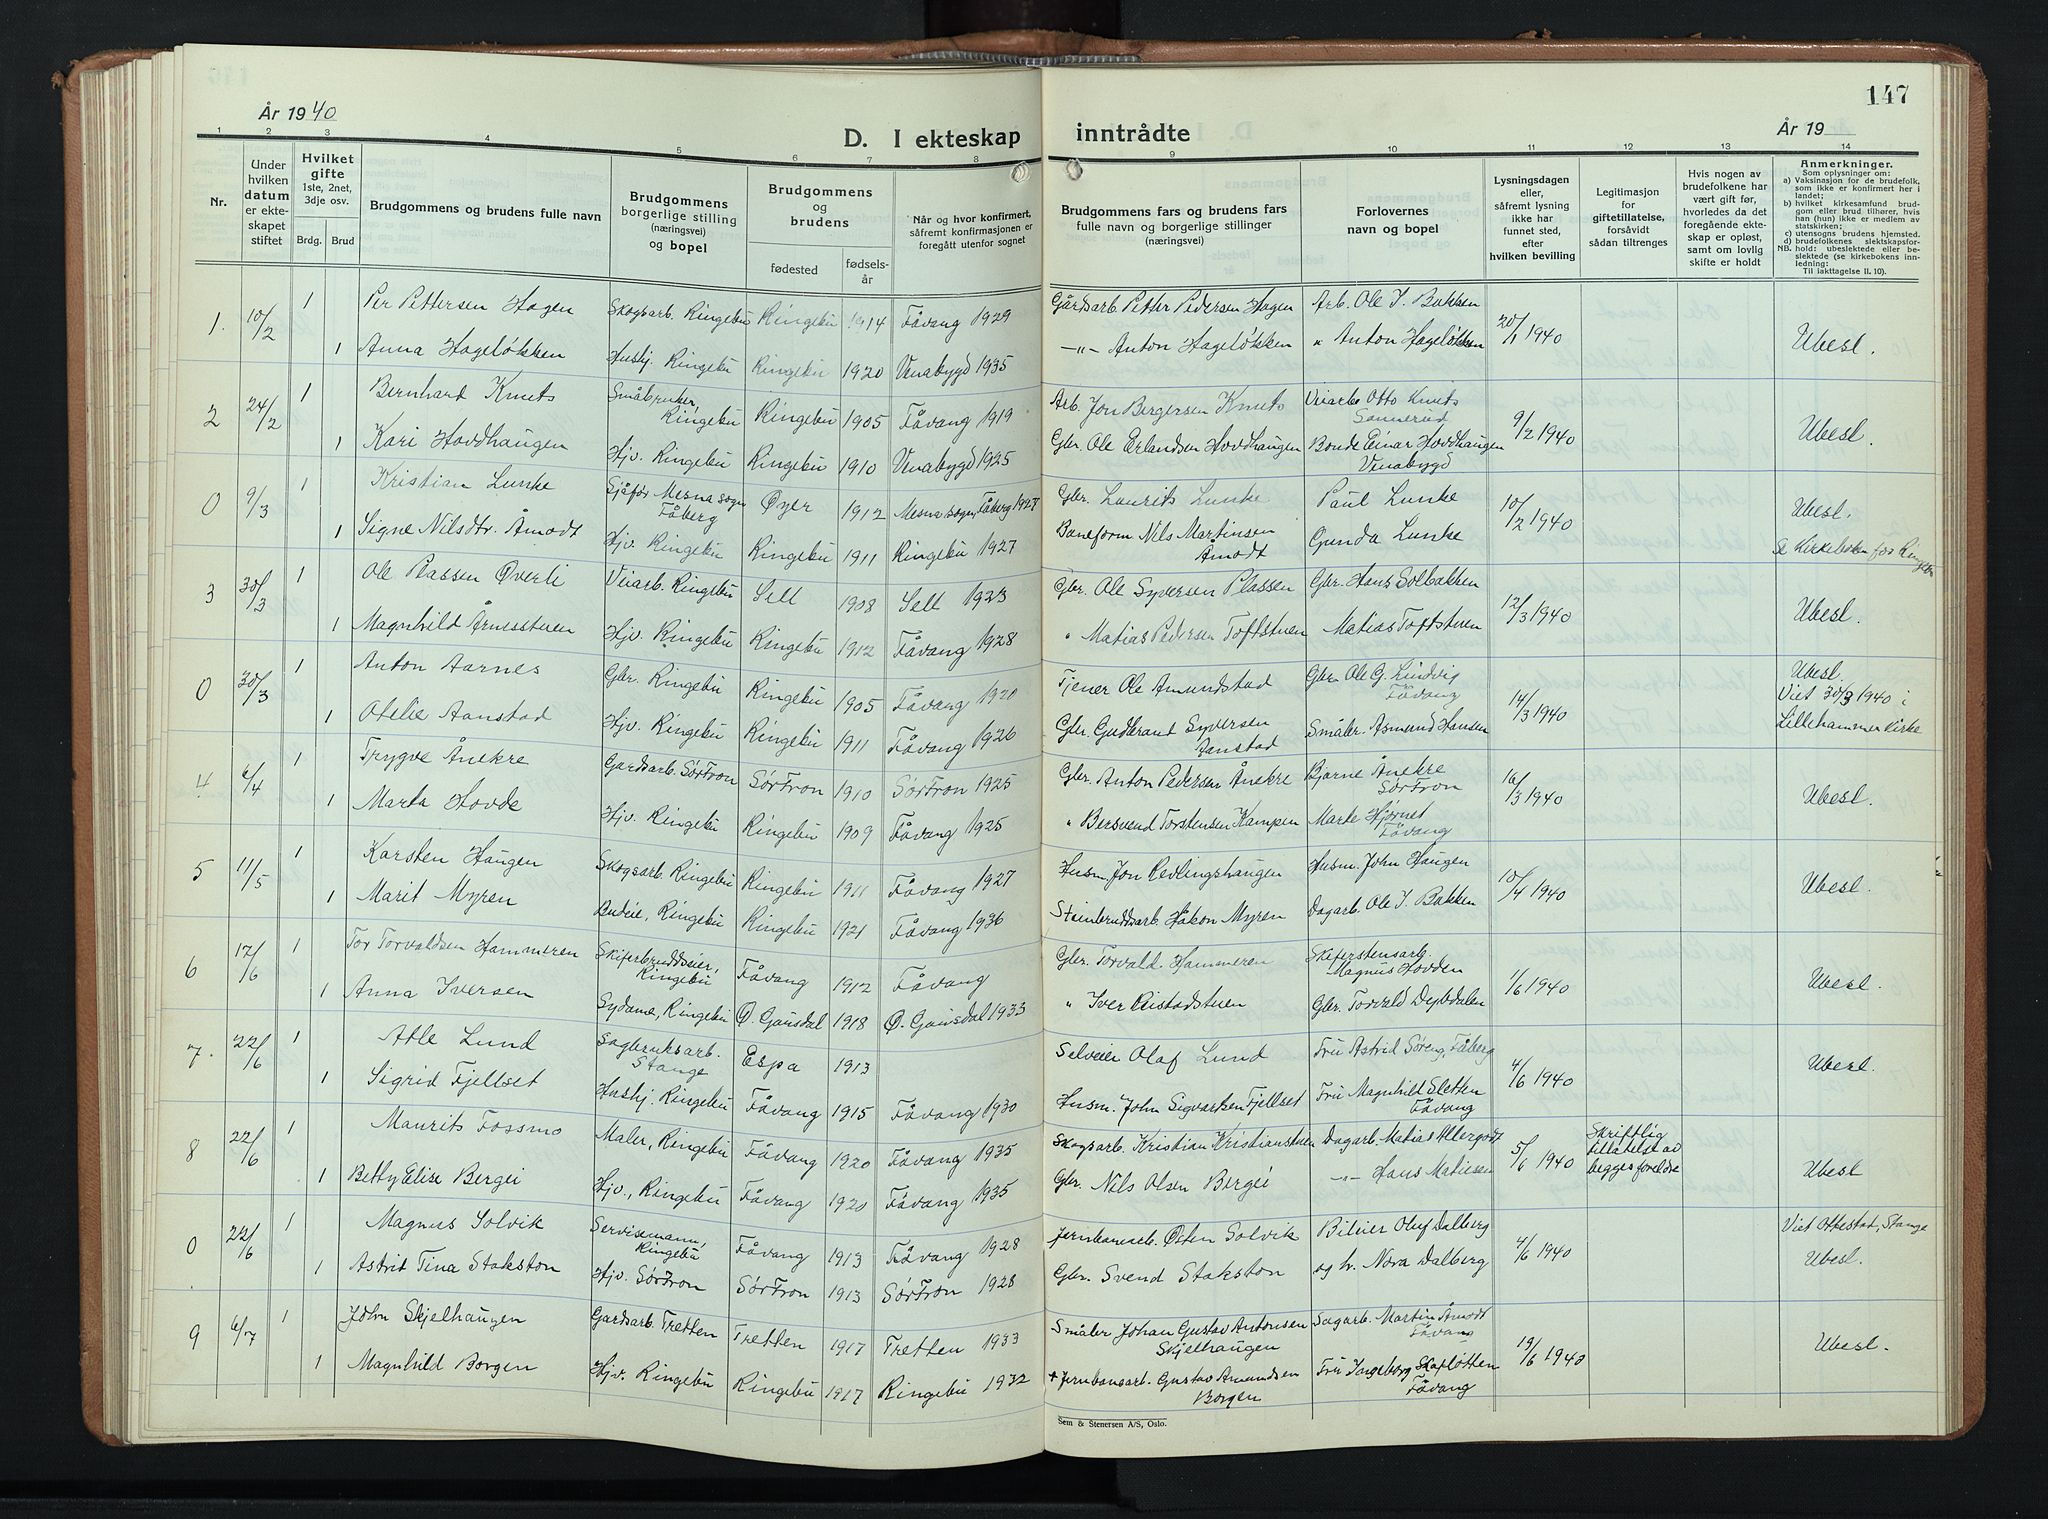 147
År 1940
D. I ekteskap inntrådte
År 19
1 2 3 4 5 6 7 8 9 10 11 12 13 14
Nr.
Under hvilken datum er ekteskapet stiftet
Hvilket gifte 1ste, 2net, 3dje osv.
Brdg. Brud
Brudgommens og brudens fulle navn
Brudgommens borgerlige stilling (næringsvei) og bopel
Brudgommens og brudens
fødested
fødselsår
Når og hvor konfirmert, såfremt konfirmasjonen er foregått utenfor sognet
Brudgommens fars og brudens fars fulle navn og borgerlige stillinger (næringsvei)
Forlovernes navn og bopel
Lysningsdagen eller, såfremt lysning ikke har funnet sted, efter hvilken bevilling
Legitimasjon for giftetillatelse, forsåvidt sådan tiltrenges
Hvis nogen av brudefolkene har vært gift før, hvorledes da det foregående ekteskap er opløst, samt om lovlig skifte er holdt
Anmerkninger.
Som oplysninger om:
a) Vaksinasjon for de brudefolk, som ikke er konfirmert her i landet;
b) hvilket kirkesamfund brudgom eller brud tilhører, hvis han (hun) ikke er medlem av statskirken;
c) utensogns brudens hjemsted.
d) brudefolkenes slektskapsforhold: ubeslektede eller beslektede (se kirkebokens innledning:
NB.
Til iakttagelse II. 10).
1. 10/2 1 Per Pettersen Hagen Skogsarb. Ringebu Ringebu 1914 Fåvang 1929 Gårdsarb. Petter Pedersen Hagen Arb. Ole J. Bakken 20/1 1940 Ubesl.
1 Anna Hageløkken Hushj. Ringebu Ringebu 1920 Venabygd 1935 —"— Anton Hageløkken " Anton Hageløkken
2 24/2 1 Bernhard Knuts Småbruker, Ringebu Ringebu 1905 Fåvang 1919 Arb. Jon Bergersen Knuts Veiarb. Otto Knuts Sønnerud 9/2 1940 Ubesl.
1 Kari Hovdhaugen Hjv. Ringebu Ringebu 1910 Venabygd 1925 Gbr. Ole Erlandsen Hovdhaugen Bonde Einar Hovdhaugen Venabygd
0 9/3 1 Kristian Lunke Sjåfør Mesna sogn Fåberg Øyer 1912 Mesna sogn, Fåberg 1927 Gbr. Laurits Lunke Paul Lunke 10/2 1940 Ubesl.
1 Signe Nilsdtr. Åmodt Hjv. Ringebu Ringebu 1911 Ringebu 1927 Baneform Nils Martinsen Åmodt Gunda Lunke Se kirkeboken for Ringebu
3 30/3 1 Ole Plassen Øverli Veiarb. Ringebu Sell 1908 Sell 1923 Gbr. Ole Syversen Plassen Gbr. Hans Solbakken 12/3 1940 Ubesl.
1 Magnhild Årnesstuen Hjv. Ringebu Ringebu 1912 Fåvang 1928 " Matias Pedersen Toftstuen Matias Toftstuen
0 30/3 1 Anton Aarnes Gbr. Ringebu Ringebu 1905 Fåvang 1920 Tjener Ole Amundstad Gbr. Ole G. Lindvig Fåvang 14/3 1940 Ubesl. Viet 30/3 1940 i
1 Otelie Aanstad Hjv. Ringebu Ringebu 1911 Fåvang 1926 Gbr. Gudbrand Syversen Aanstad Småbr. Asmund Hansen Lillehammer kirke
4 6/4 1 Trygve Ånekre Gardsarb. SørFron SørFron 1910 SørFron 1925 Gbr. Anton Pedersen Ånekre Bjarne Ånekre SørFron 16/3 1940 Ubesl.
1 Marta Hovde Hjv. Ringebu Ringebu 1909 Fåvang 1925 " Bersvend Torstensen Kampen Marte Hjørnet Fåvang
5 11/5 1 Karsten Haugen Skogsarb. Ringebu Ringebu 1911 Fåvang 1927 Husm. Jon Redlingshaugen Husm. John Haugen 10/4 1940 Ubesl.
1 Marit Myren Budeie, Ringebu Ringebu 1921 Fåvang 1936 Steinbruddsarb. Håkon Myren Dagarb. Ole J. Bakken
6 17/6 1 Tor Torvaldsen Hammeren Skiferbruddseier, Ringebu Fåvang 1912 Fåvang Gbr. Torvald. Hammeren Skiferstensarb. Magnus Hovden 1/6 1940 Ubesl.
1 Anna Iversen Sydame, Ringebu Ø. Gausdal 1918 Ø. Gausdal 1933 " Iver Reistadstuen Gbr. Torvald Deybdalen
7. 22/6 1 Atle Lund Sagbruksarb. Stange Espa 1913 Selveier Olaf Lund Fru Astrid Søreng, Fåberg 4/6 1940 Ubesl.
1 Sigrid Fjellset Hushj. Ringebu Fåvang 1915 Fåvang 1930 Husm. John Sigvartsen Fjellset Fru Magnhild Sletten Fåvang
8 22/6 1 Maurits Fossmo Maler, Ringebu Fåvang 1920 Fåvang 1935 Skogsarb. Kristian Kristianstuen Dagarb. Matias Allergodt 5/6 1940 Skriftlig tillatelse av begges foreldre Ubesl
1 Betty Elise Bergei Hjv., Ringebu Fåvang 1920 Fåvang 1935 Gbr. Nils Olsen Bergei —"— Hans Matiesen
0 22/6 1 Magnus Solvik Servisemann, Ringebu Fåvang 1913 Fåvang 1928 Jernbanearb. Østen Solvik Bileier Oluf Dalberg 4/6 1940 Viet Ottestad, Stange
1 Astrid Tina Stokston Hjv. SørFron SørFron 1913 SørFron 1928 Gbr. Svend Stokston og h. Nora Dalberg Ubesl.
9 6/7 1 John Skjelhaugen Gardsarb. Tretten Tretten 1917 Tretten 1933 Småbr Johan Gustav Antonsen Skjelhaugen Sagarb. Martin Åmodt Fåvang 19/6 1940 Ubesl.
1 Magnhild Borgen Hjv. Ringebu Ringebu 1917 Ringebu 1932 + Jernbanearb. Gustav Amundsen Borgen Fru Ingeborg Skafløtten Fåvang
Sem & Stenersen A/S, Oslo.